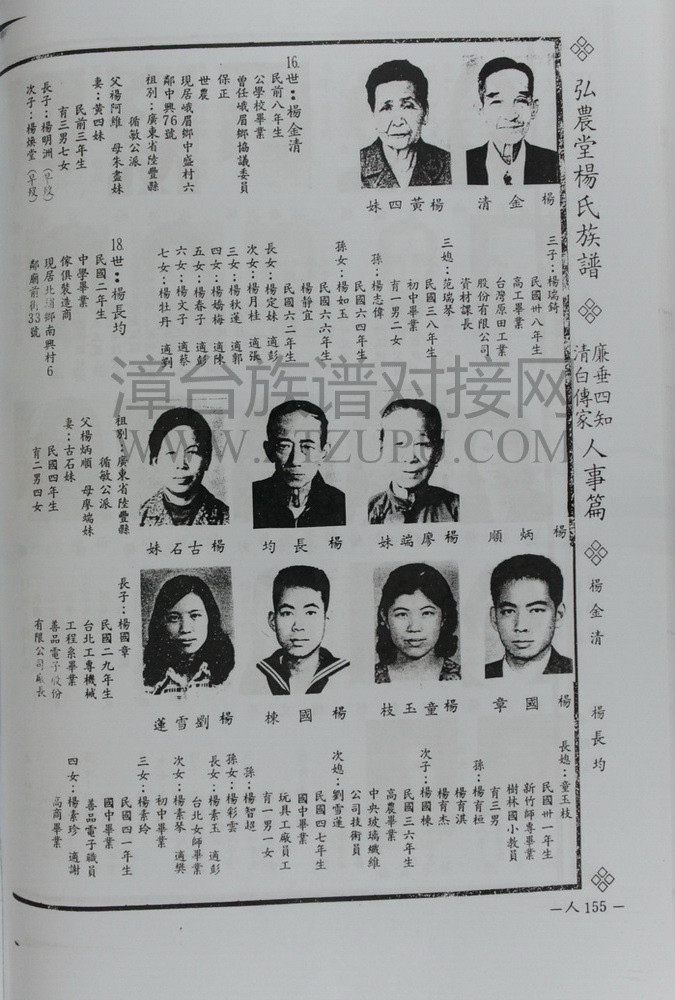 弘農堂楊氏族譜
廉垂四知
清白傳家
人事篇
楊金清
楊長均
楊金清
楊黃四妹
16.世：楊金清
民前八年生
公學校畢業
曾任峨眉鄉協議委員
保正
世農
現居峨眉鄉中盛村六
鄰中興76號
祖別：廣東省陸豐縣
循敏公派
父楊阿維　母朱盡妹
妻：黃四妹
民前三年生
育三男七女
長子：楊明洲（早歿）
次子：楊煥堂（早歿）
三子：楊瑞錡
民國卅八年生
高工畢業
台灣原田工業
股份有限公司
資材課長
三媳：范瑞琴
民國三八年生
初中畢業
育一男二女
孫：楊志偉
民國六四年生
孫女：楊如玉
民國六六年生
楊靜宜
民國六二年生
長女：楊定妹　適彭
次女：楊月桂　適張
三女：楊秋蓮　適郭
四女：楊嬌梅　適陳
五女：楊春子　適彭
六女：楊文子　適蔡
七女：楊牡丹　適劉
18.世：楊長均
民國二年生
中學畢業
傢俱製造商
現居北埔鄉南興村6
鄰廟前街33號
楊炳順
楊廖端妹
楊長均
楊古石妹
祖別：廣東省陸豐縣
循敏公派
父楊炳順　母廖端妹
妻：古石妹
民國四年生
育二男四女
楊國章
楊童玉枝
楊國棟
楊劉雪蓮
長子：楊國章
民國二九年生
台北工專機械
工程系畢業
善品電子股份
有限公司廠長
長媳：童玉枝
民國卅一年生
新竹師專畢業
樹林國小教員
育三男
孫：楊育桓
楊育淇
楊育杰
次子：楊國棟
民國三六年生
高農畢業
中央玻璃纖維
公司技術員
次媳：劉雪蓮
民國四七年生
國中畢業
玩具工廠員工
育一男一女
孫：楊智超
孫女：楊彩雲
長女：楊素玉　適彭
台北女師畢業
次女：楊素琴　適樊
初中畢業
三女：楊素玲
民國四一年生
國中畢業
善品電子職員
四女：楊素珍　適謝
高商畢業
—人155—
漳台族谱对接网
WWW.ZTZUPU.COM